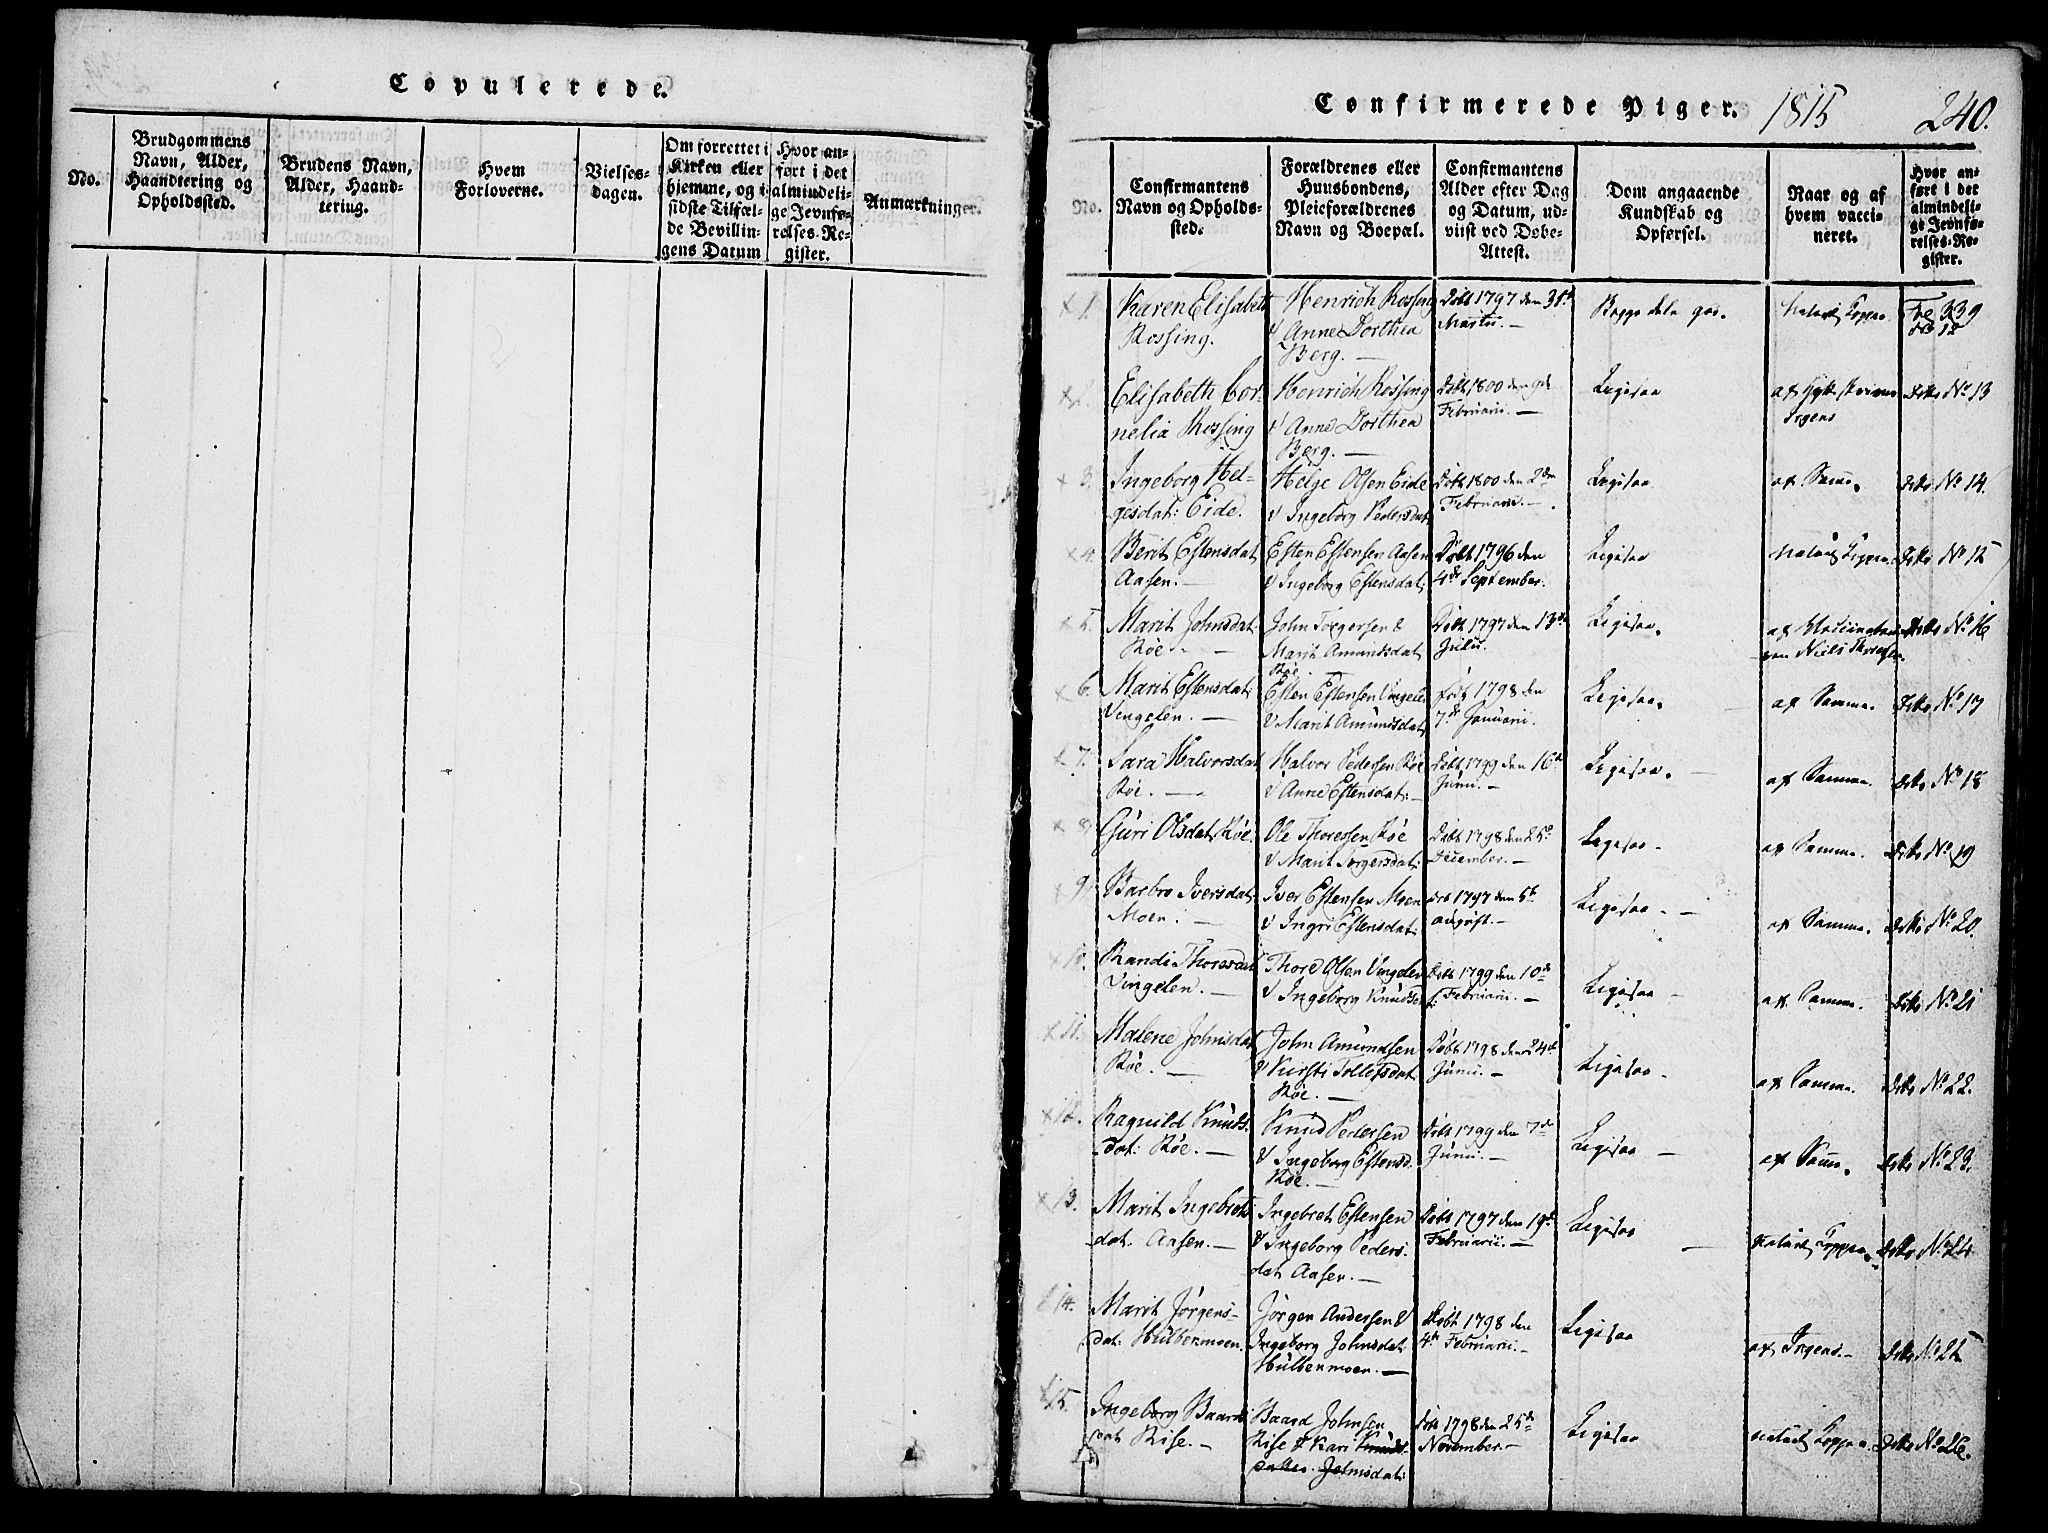 Copulerede.
No.
Brudgommens
Navn, Alder,
Haandtering og
Opholdssted.
Brudens Navn,
Alder, Haand-
tering.
Hvem
Forloverne.
Vielses-
dagen.
Om forrettet i
Kirken eller
hjemme, og i
sidste Tilfæl-
de Bevillin-
gens Datum
Hvor an-
ført i det
almindeli-
ge Jevnfø-
relses-Re-
gister.
Anmærkninger.
Confirmerede Piger. 1815 240.
No.
Confirmantens
Navn og Opholds-
sted.
Forældrenes eller
Huusbondens,
Pleieforældrenes
Navn og Boepæl.
Confirmantens
Alder efter Dag
og Datum, ud-
viist ved Døbe-
Attest.
Dom angaaende
Kundskab og
Opførsel.
Naar og af
hvem vacci-
neret.
Hvor an-
ført i det
almindeli-
ge Jevnfø-
relses-Re-
gister.
1. Karen Elisabeth
Rossing.
Henrich Rossing
& Anne Dorthea
Berg. —
Døbt 1797 den 31te
Martii. —
Begge dele god.
Naturl. Kopper
339
No 12
2. Elisabeth Cor-
nelia Rossing
Henrich Rossing
& Anne Dorthea
Berg. —
Døbt 1800 den 9de
Februarii. —
Ligesaa
Irgens
Dito No 13
3. Ingeborg Hel-
gesdat: Eide.
Helge Olsen Eide
& Ingeborg Pedersdat:
Døbt 1800 den 2den
Februarii. —
Ligesaa
af Samme.
Dito No 14.
4. Berit Estensdat:
Aasen. —
Esten Estensen Aasen
& Ingeborg Estensdat:
Døbt 1796 den
4de September.
Ligesaa
Naturl. Kopper.
Dito No 15
5. Marit Johnsdat:
Røe —
John Torgersen &
Marit Amundsdat:
Røe
Døbt 1797 den 13de
Julii.
Ligesaa.
af
Niels Thoresen.
Dito No 16
6. Marit Estensdat:
Vingelen. —
Esten Estensen Vingelen
& Marit Amundsdat:
Døbt 1798 den
7de Januarii.
Ligesaa.
af Samme.
Dito No 17
7. Sara Halvorsdat:
Røe. —
Halvor Pedersen Røe
& Anne Estensdat: —
Døbt 1799 den 16de
Junii. —
Ligesaa. —
af Samme.
Dito No 18
8. Guri Olsdat: Røe.
Ole Thoresen Røe
& Marit Torgersdat:
Døbt 1798 den 25de
December. —
Ligesaa —
af Samme.
Dito No 19
9. Barbro Iversdat:
Moen. —
Iver Estensen Moen
& Ingri Estensdat:
Døbt 1797 den 6te
August. —
Ligesaa. —
af Samme.
Dito No 20.
10. Randi Thoresdat:
Vingelen. —
Thore Olsen Vingelen
& Ingeborg Knudsd.
Døbt 1799 den 10de
Februarii. —
Ligesaa —
af Samme.
Dito No 21
11. Malene Johnsdat:
Røe. —
John Amundsen
& Kirsti Tollefsdat:
Røe. —
Døbt 1798 den 24de
Junii. —
Ligesaa —
af Samme.
Dito No 22.
12. Ragnild Knuds-
dat: Røe. —
Knud Pedersen
& Ingeborg Estensd.
Røe. —
Døbt 1799 den 7de
Junii. —
Ligesaa —
af Samme.
Dito No 23.
13. Marit Ingebrets-
dat: Aasen. —
Ingebret Estensen
& Ingeborg Peders-
dat: Aasen. —
Døbt 1797 den 19de
Februarii. —
Ligesaa —
Naturl. Kopper.
Dito No 24
14. Marit Jørgens-
dat: Hulbermoen.
Jørgen Andersen &
Ingeborg Johnsdat:
Hulbermoen. —
Døbt 1798 den
4de Februarii. —
Ligesaa
af Irgens —
Dito No 25
15. Ingeborg Baards-
dat: Rise. —
Baard Johnsen
Rise & Kari Knuds-
datter. Johnsdat:
Døbt 1798 den 25de
November. —
Ligesaa
Naturl. Kopper.
Dito No 26.